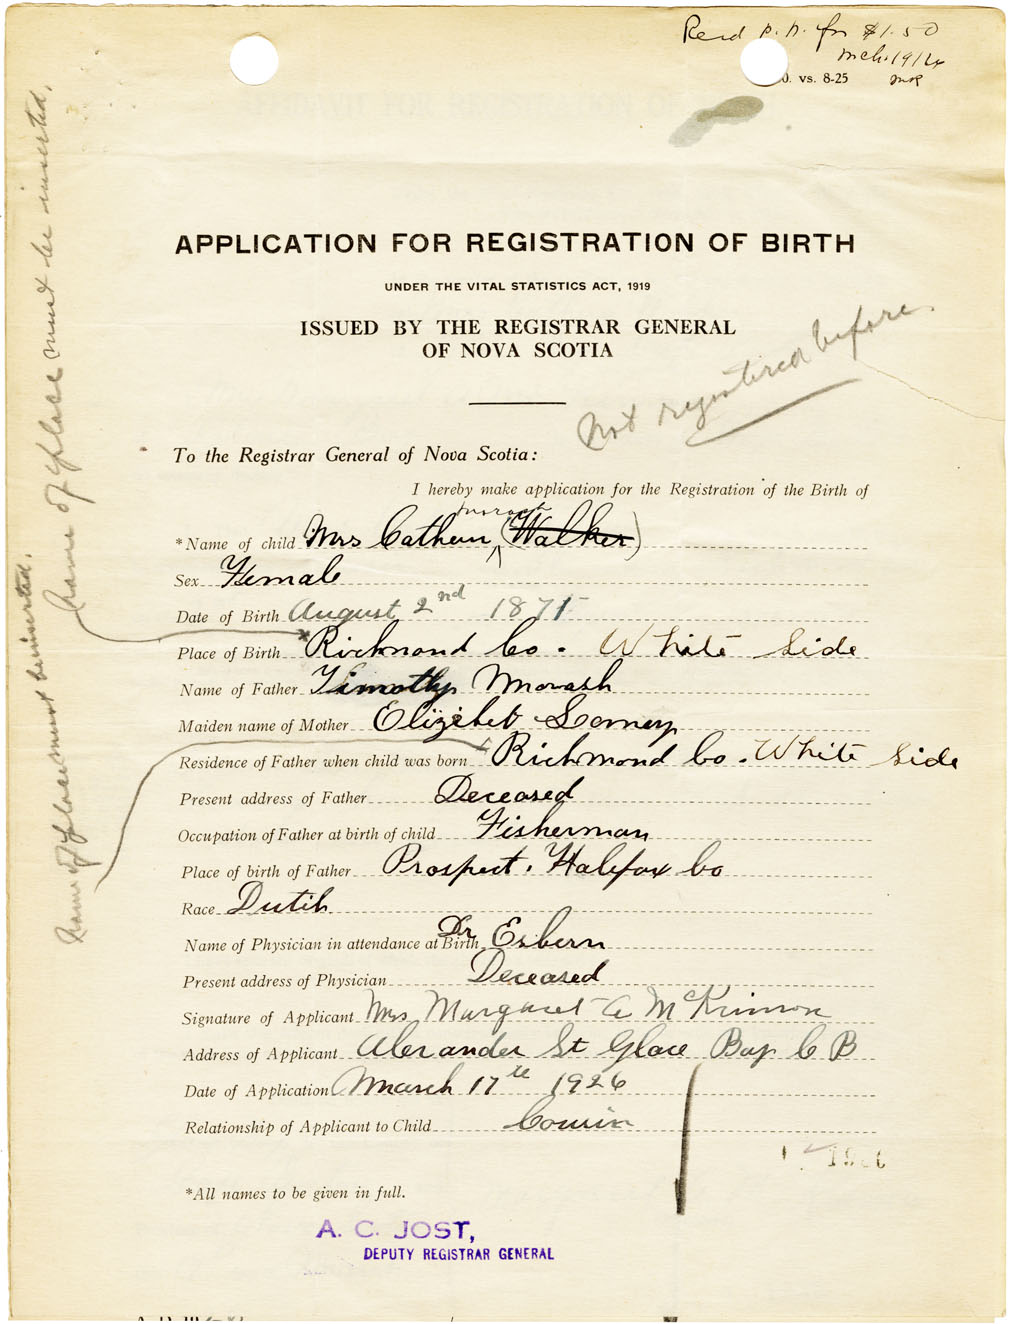 Recd p. n. for $1.50
Mch. 19/26
vs. 8-25
APPLICATION FOR REGISTRATION OF BIRTH
UNDER THE VITAL STATISTICS ACT, 1919
ISSUED BY THE REGISTRAR GENERAL
OF NOVA SCOTIA
Not registered before.
To the Registrar General of Nova Scotia:
I hereby make application for the Registration of the Birth of
Morash
*Name of child Mrs Cathern (Walker)
Sex Female
Date of Birth August 2nd 1871
Place of Birth Richmond Co. White Side
Name of Father Timothy Morash
Maiden name of Mother Elizebeb
Residence of Father when child was born Richmond Co. White Side
Present address of Father Deceased
Occupation of Father at birth of child Fisherman
Place of birth of Father Prospect. Halifax Co
Race Dutih
Name of Physician in attendance at Birth Dr Esbern
Present address of Physician Deceased
Signature of Applicant Mrs Margaret A McKinnon
Address of Applicant Alexander St Glace Bay C B
Date of Application March 17th 1926
Relationship of Applicant to Child Cousin
*All names to be given in full.
A. C. JOST,
DEPUTY REGISTRAR GENERAL
Name of place must be inserted.
Name of place must be inserted.